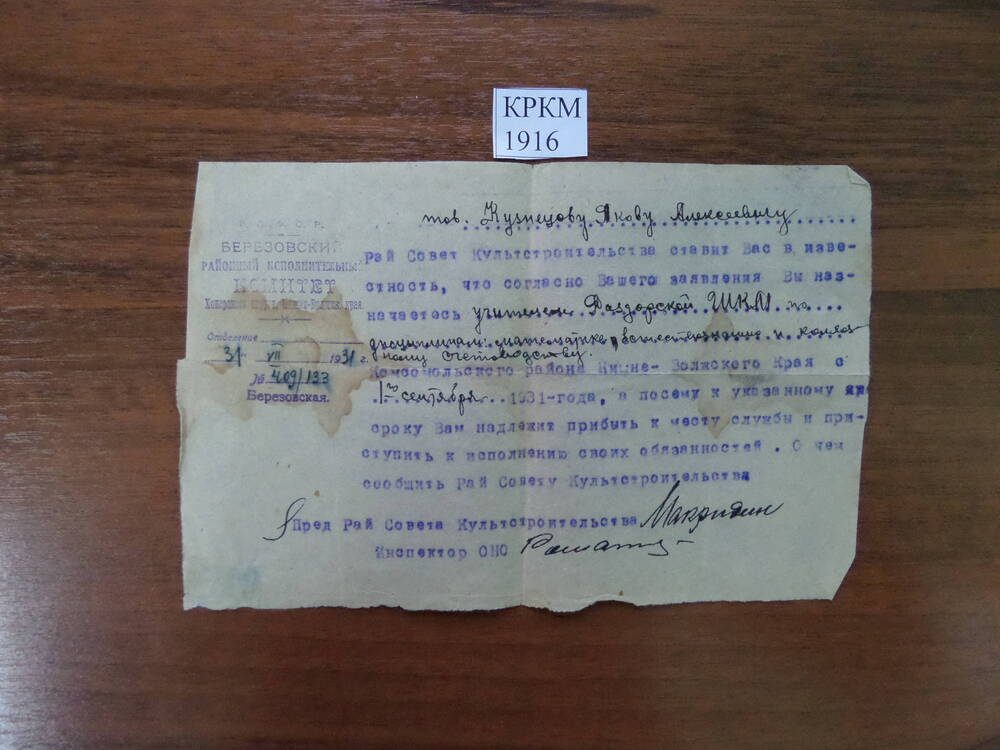 КРКМ
1916
Р. С. Ф. С. Р.
БЕРЕЗОВСКИЙ
РАЙОННЫЙ ИСПОЛНИТЕЛЬНЫЙ
КОМИТЕТ
края
Отделение
31 VII 1931 г.
№ 409/133
Березовская.
тов. Кузнецову Якову Алексеевичу
Рай Совет Культстроительства ставит Вас в изве-
стность, что согласно Вашего заявления Вы наз-
начаетесь учителем Раздорской ШКМ по
дисциплинам: математике, естествознанию и колхоз
ному счетоводству.
Комсомольского района Нижне- Волжского Края с
1го сентября 1931-года, а посему к указанному
сроку Вам надлежит прибыть к месту службы и при-
ступить к исполнению своих обязанностей. О чем
сообщить Рай Совету Культстроительства
Пред Рай Совета Культстроительства
Инспектор ОНО